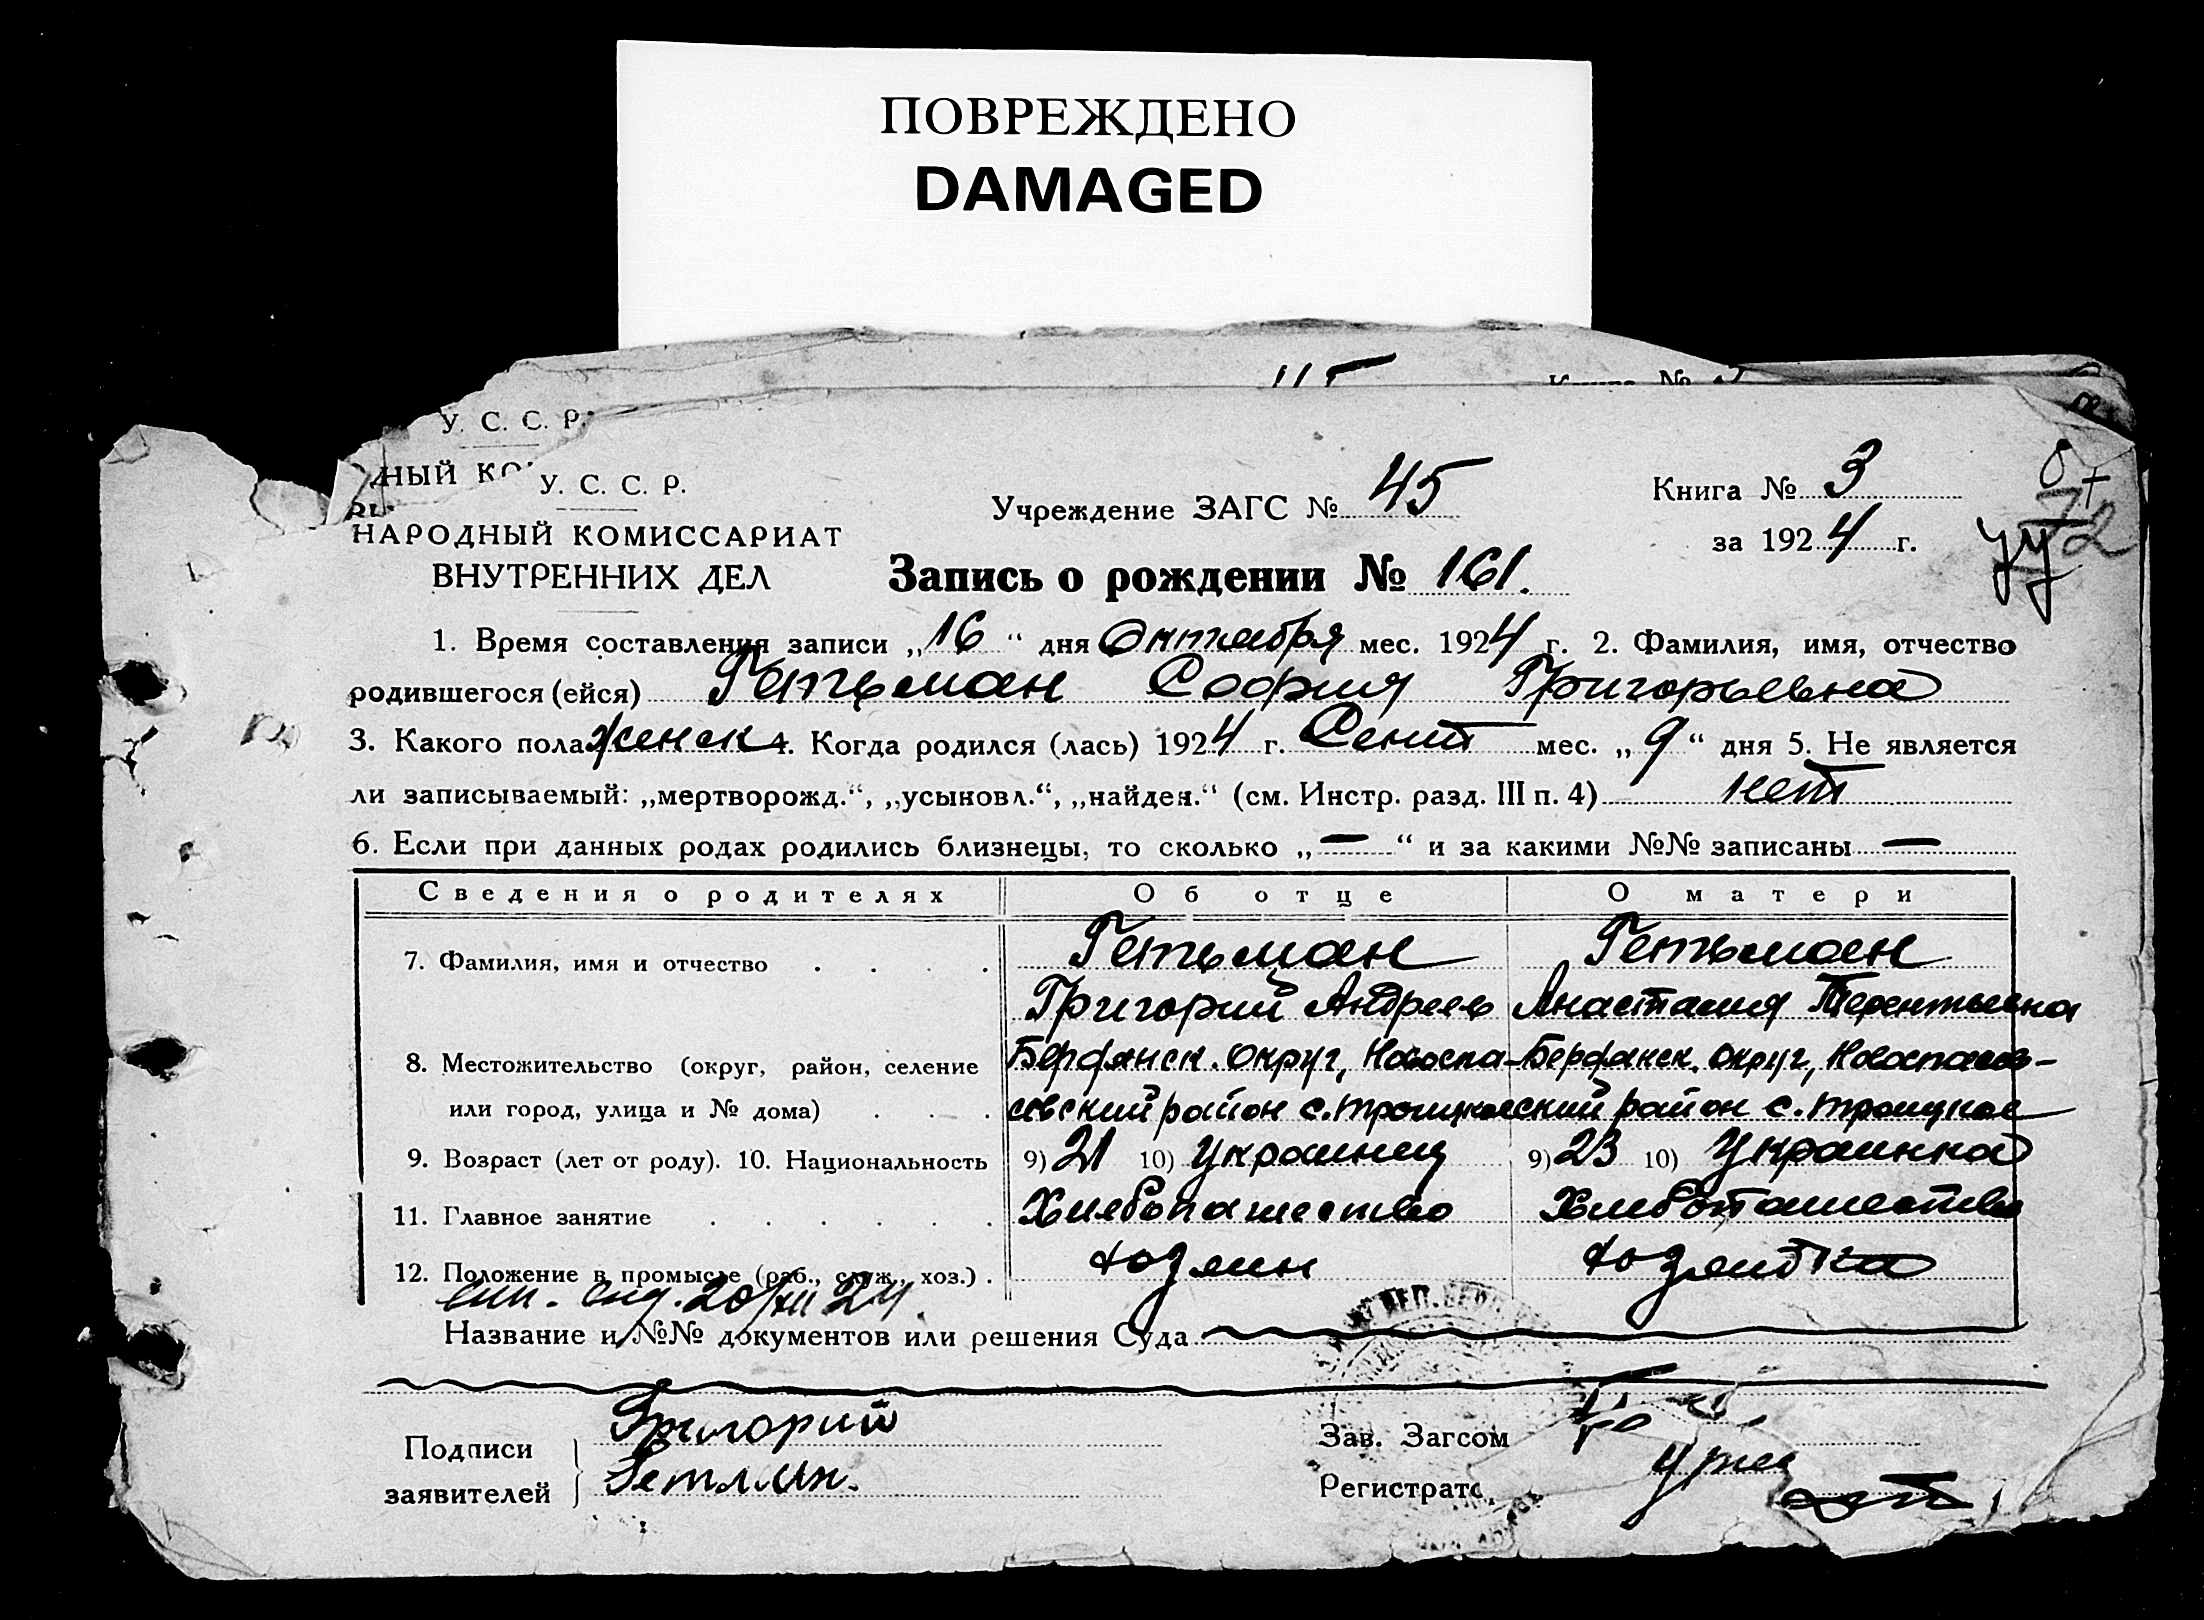 ПОВРЕЖДЕНО
DAMAGED
У. С. С. Р.
ДНЫЙ КО
У. С. С. Р.
НАРОДНЫЙ КОМИССАРИАТ
ВНУТРЕННИХ ДЕЛ
Учреждение ЗАГС № 45
Книга № 3
за 1924 г.
Запись о рождении № 161.
1. Время составления записи „16“ дня Октября мес. 1924 г. 2. Фамилия, имя, отчество
родившегося (ейся) Гетьман София Григорьевна
3. Какого пола женск 4. Когда родился (лась) 1924 г. Сент мес. „9“ дня 5. Не является
ли записываемый: „мертворожд.“, „усыновл.“, „найден.“ (см. Инстр. разд. III п. 4) нет
6. Если при данных родах родились близнецы, то сколько „—“ и за какими №№ записаны —
Сведения о родителях Об отце О матери
7. Фамилия, имя и отчество Гетьман Гетьман
Григорий Андреев Анастасия Терентьевна
8. Местожительство (округ, район, селение Бердянск. округ, Новоспа- Бердянск. округ, Новоспасов-
или город, улица и № дома) совский район с. Троицкое ский район с. Троицкое
9. Возраст (лет от роду). 10. Национальность 9) 21 10) Украинец 9) 23 10) Украинка
11. Главное занятие Хлебопашество Хлебопашество
12. Положение в промысле (раб., служ., хоз.) хозяин хозяйка
20/XII 24.
Название и №№ документов или решения Суда
Подписи
заявителей
Григорий
Гетман.
Зав. Загсом
Регистрато